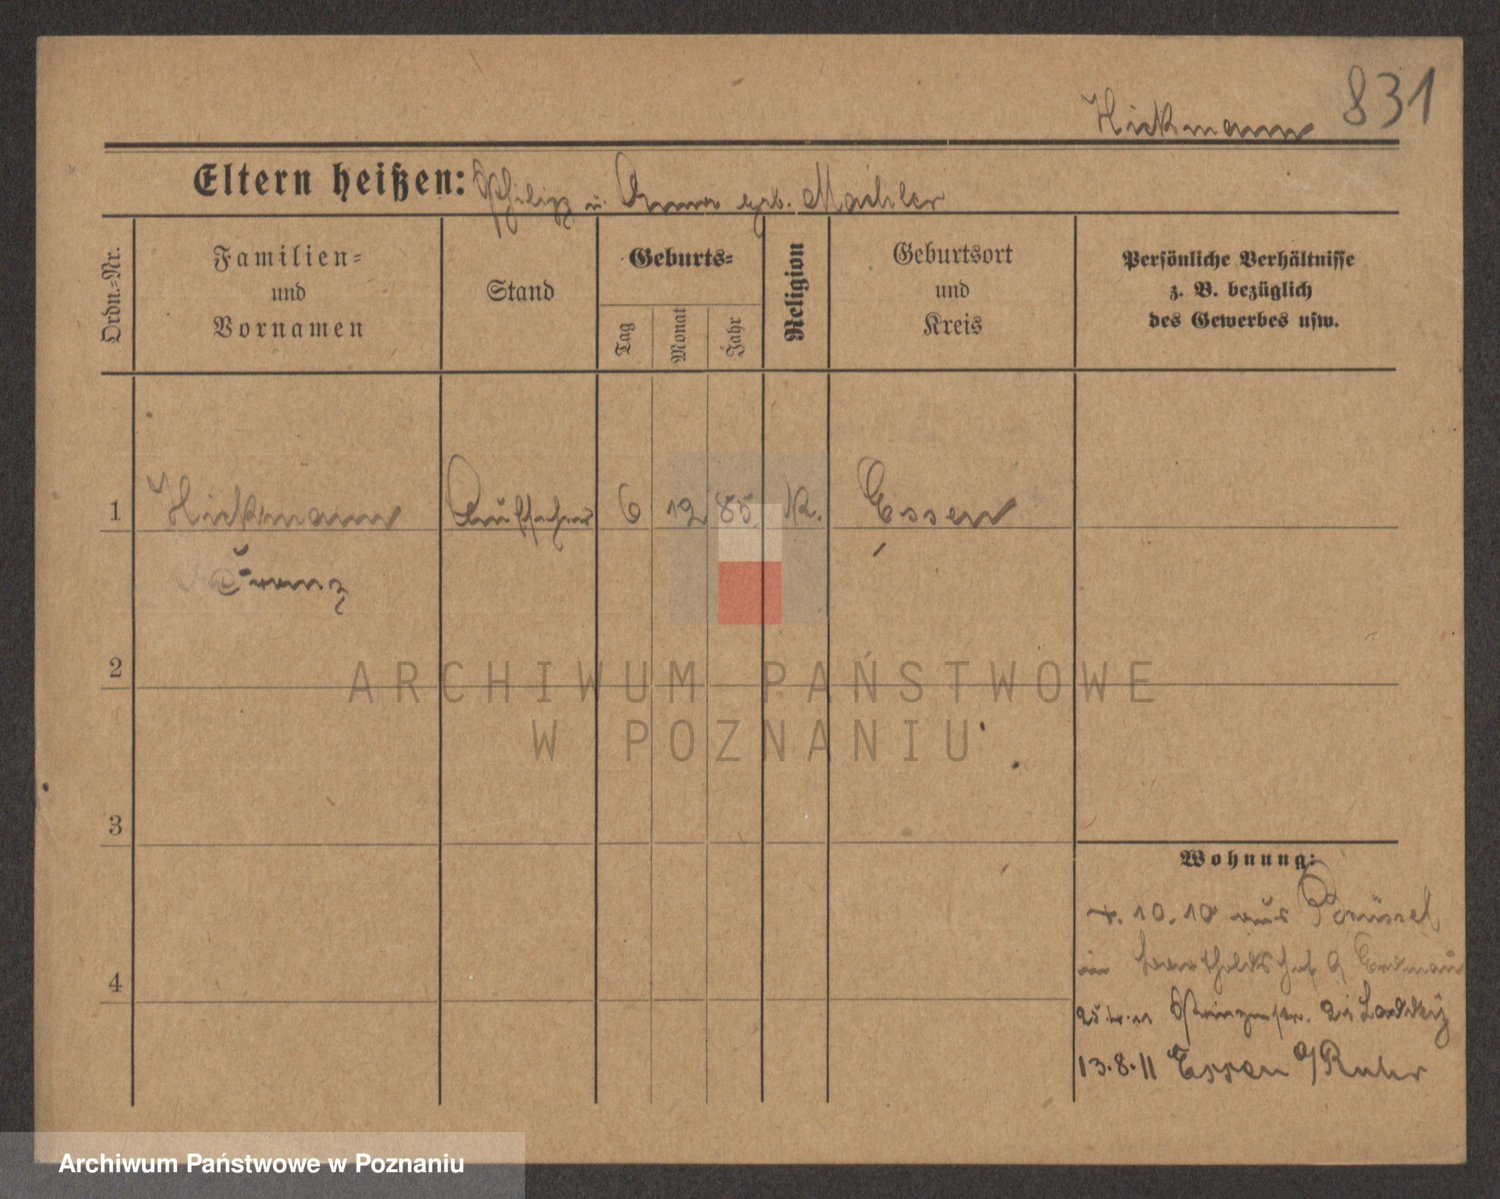 Hickmann 831
Eltern heißen: Philipp u. Anna geb. Machler
Ordn.-Nr.
Familien-
und
Vornamen
Stand
Geburts-
Tag
Monat
Jahr
Religion
Geburtsort
und
Kreis
Persönliche Verhältnisse
z. B. bezüglich
des Gewerbes usw.
1 Hickmann Aufseher 6 12 85 K. Essen
Franz
2
3
4
Wohnung:
10.10 aus Brüssel
Bertholdshof 9
25.4.11 Prinzenstr. 2
13.8.11 Essen a/Ruhr
ARCHIWUM PAŃSTWOWE
W POZNANIU
Archiwum Państwowe w Poznaniu